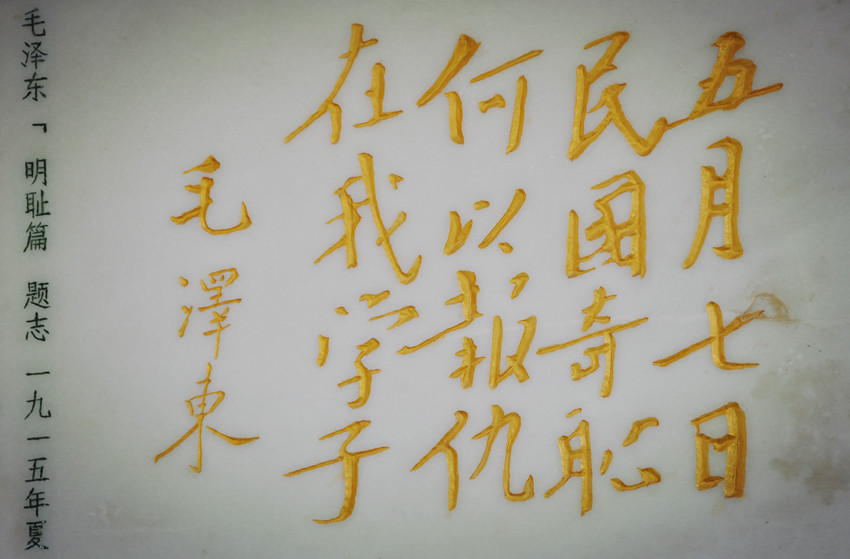 五月七日
民國奇恥
何以報仇
在我学子
毛澤東
毛泽东「明耻篇 题志 一九一五年夏